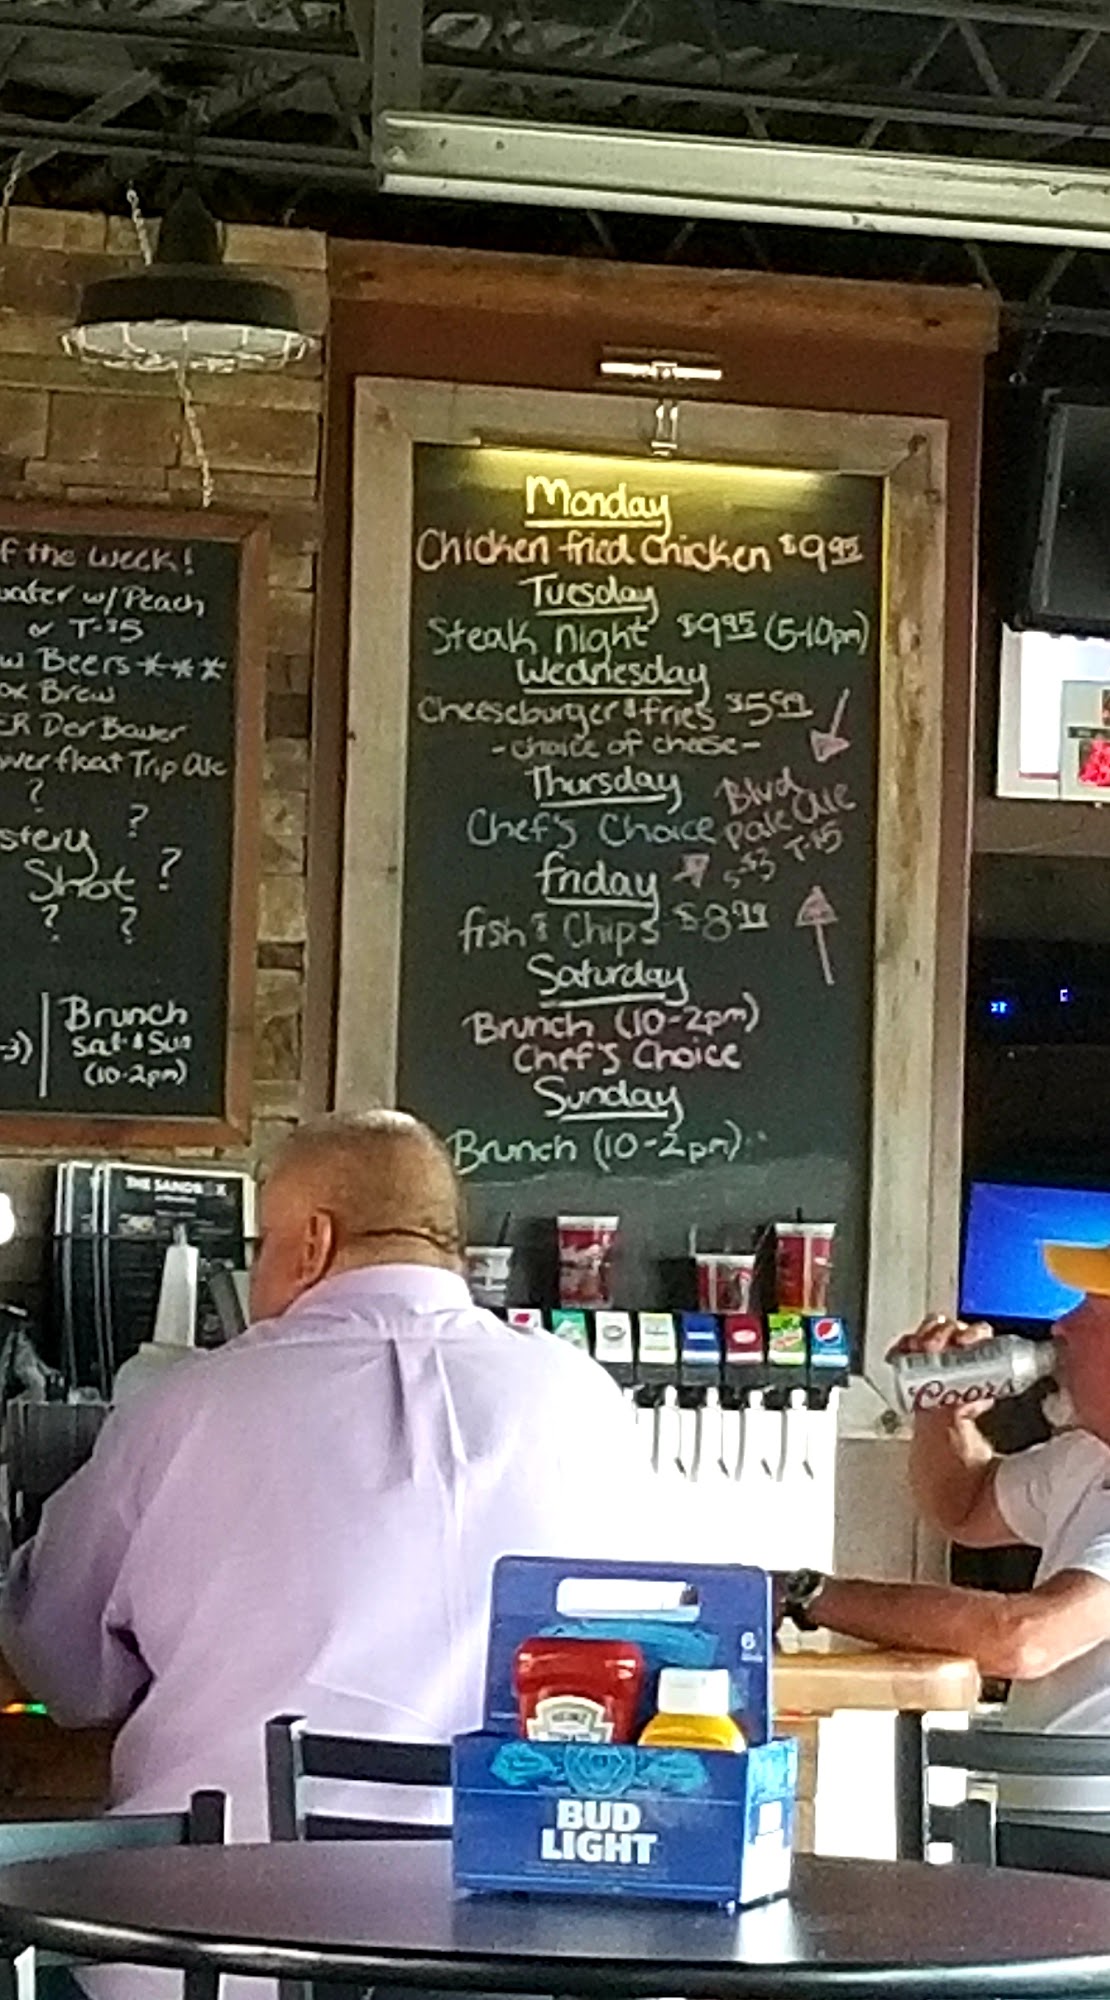 Monday
Chicken fried Chicken $9.95
Tuesday
Steak night $9.95 (5-10pm)
Wednesday
Cheeseburger & fries $5.99
-choice of cheese-
Thursday
Chef's Choice
Blvd
Pale Ale
S-$3 T-$5
friday
fish & Chips $8.99
Saturday
Brunch (10-2pm)
Chef's Choice
Sunday
Brunch (10-2pm)
f the week!
water w/ Peach
or T-$5
w Beers ***
ox Brew
ER Der Bauer
ver float Trip Ale
?
?
stery
Shot ?
? ?
-3)
Brunch
Sat & Sun
(10-2pm)
THE SANDBOX
Coors
HEINZ
6
BUD
LIGHT